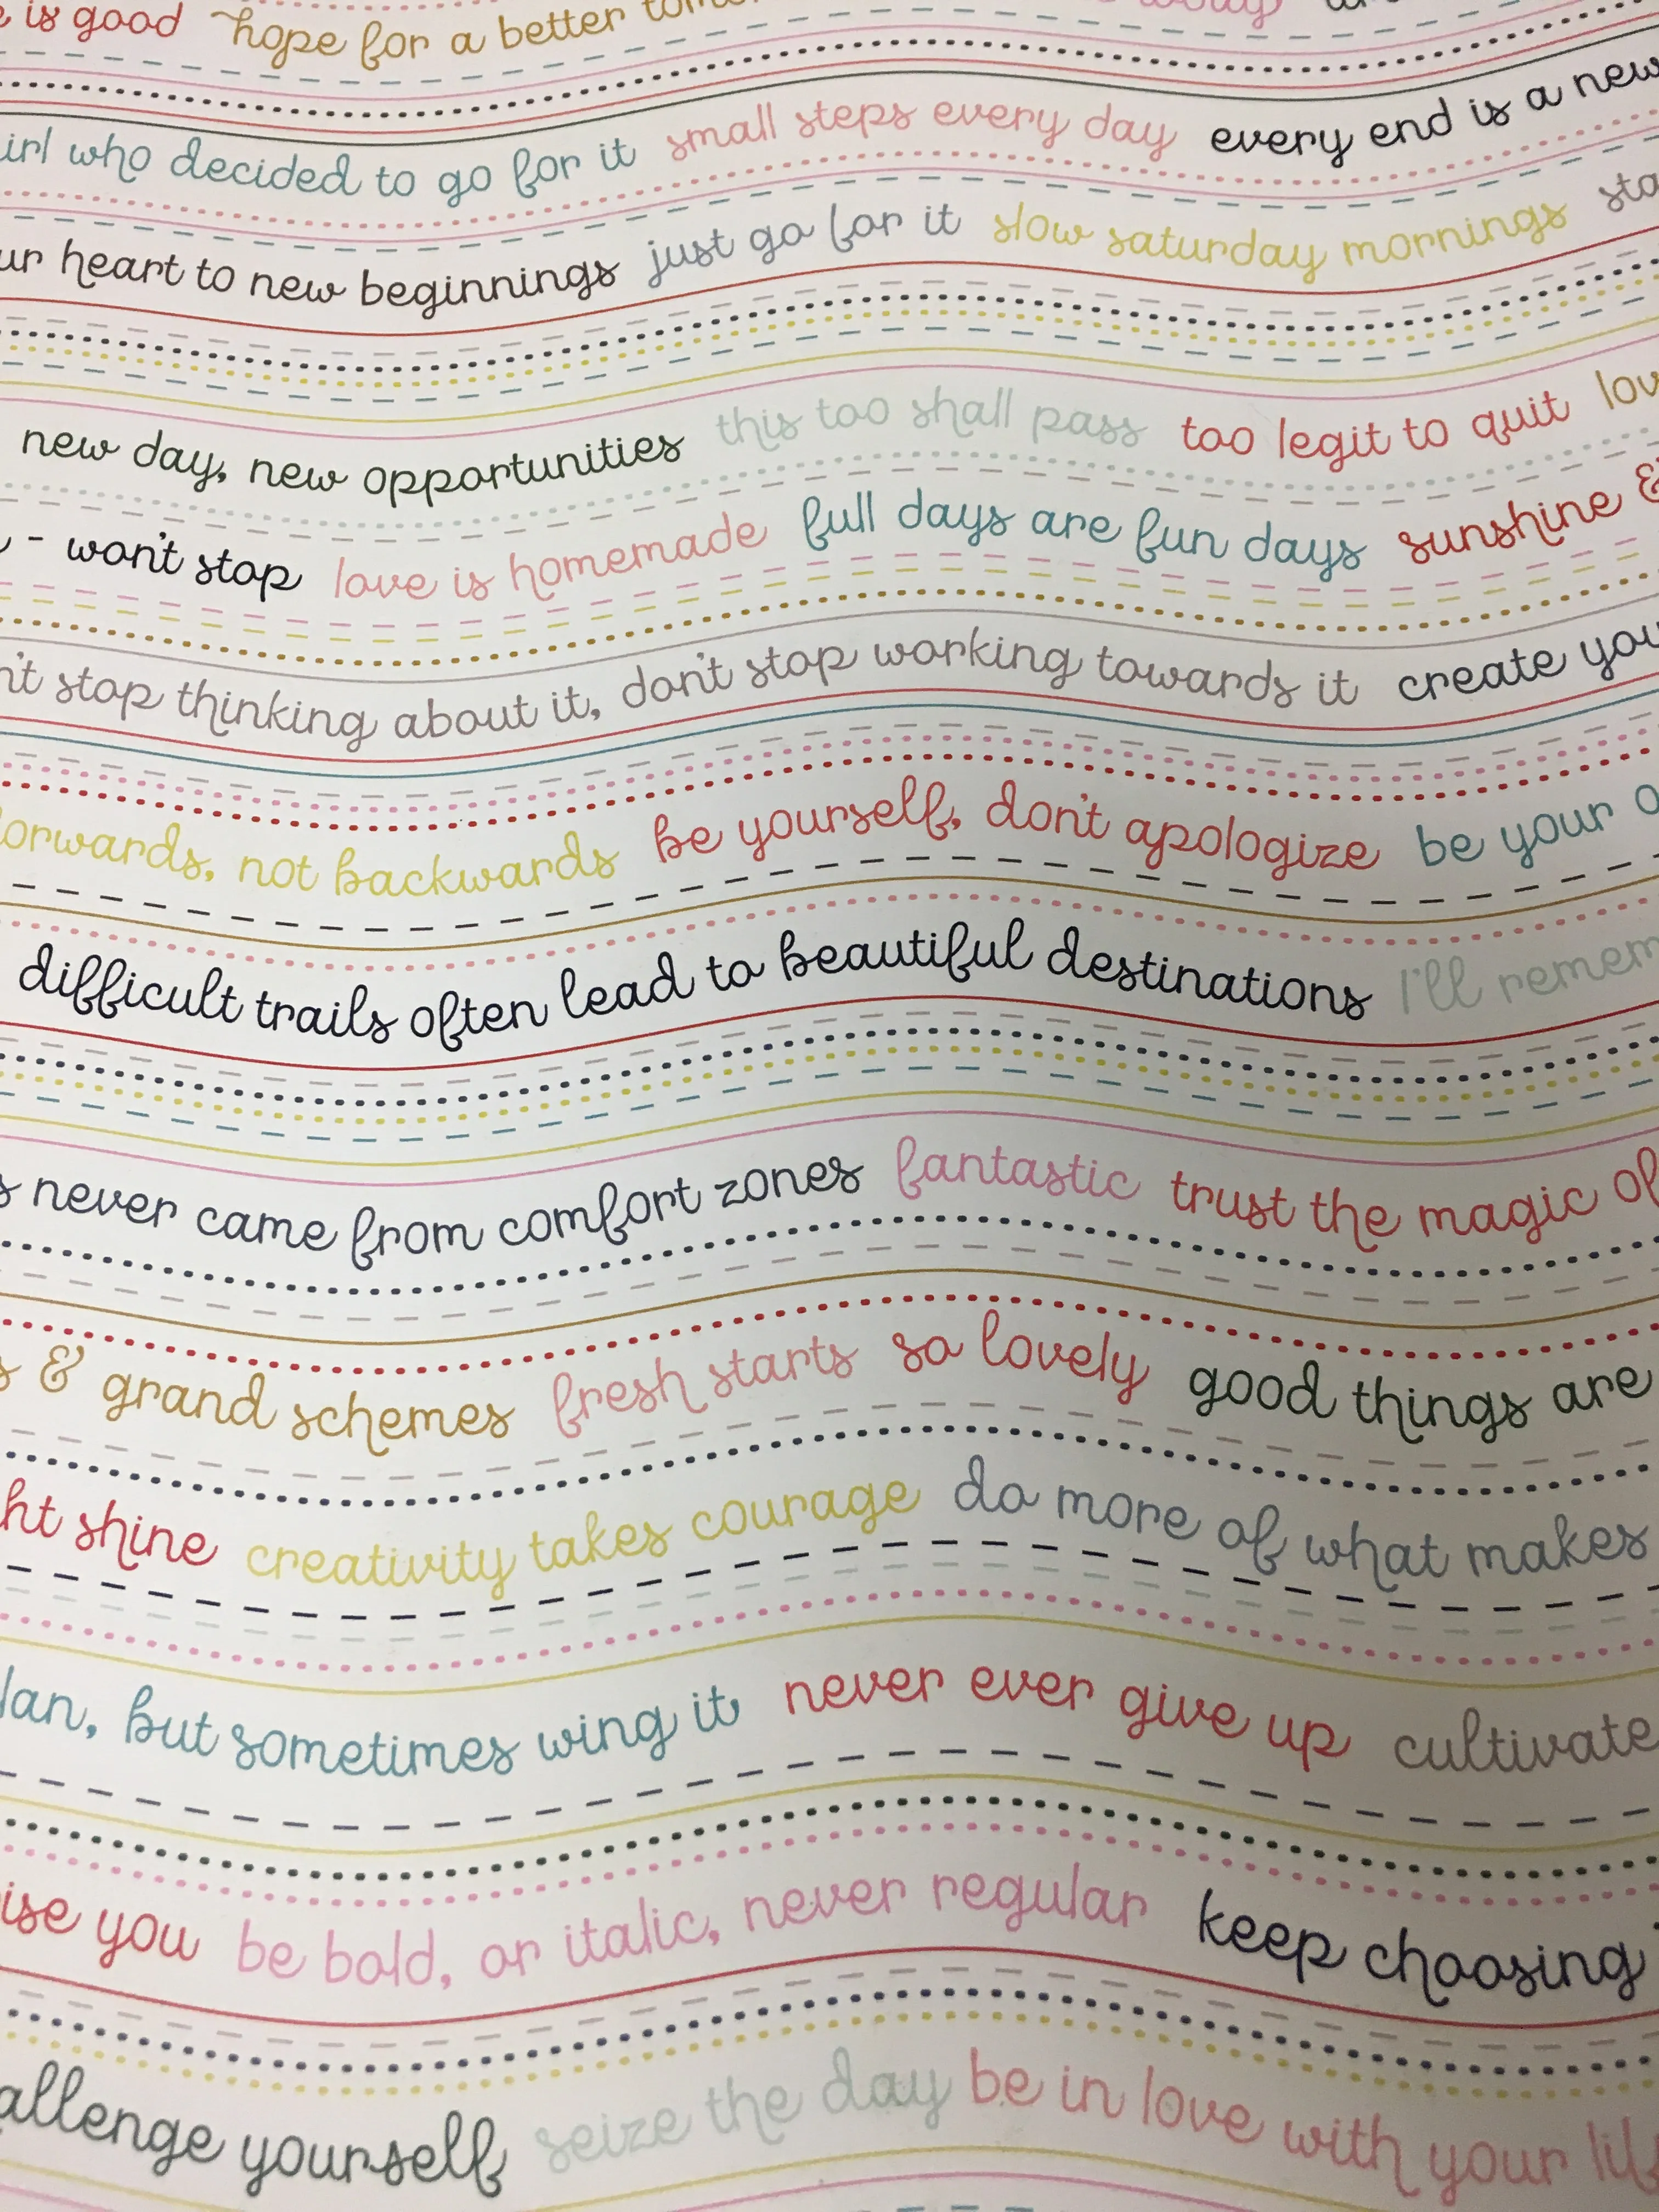 is good hope for a better
who decided to go for it small steps every day every end is a new
heart to new beginnings just go for it slow saturday mornings
new day, new opportunities this too shall pass too legit to quit
- won't stop love is homemade full days are fun days sunshine &
stop thinking about it, don't stop working towards it create
not backwards be yourself, don't apologize be your
difficult trails often lead to beautiful destinations I'll
never came from comfort zones fantastic trust the magic of
& grand schemes fresh starts so lovely good things are
shine creativity takes courage do more of what makes
but sometimes wing it never ever give up cultivate
you be bold, or italic, never regular keep choosing
yourself seize the day be in love with your